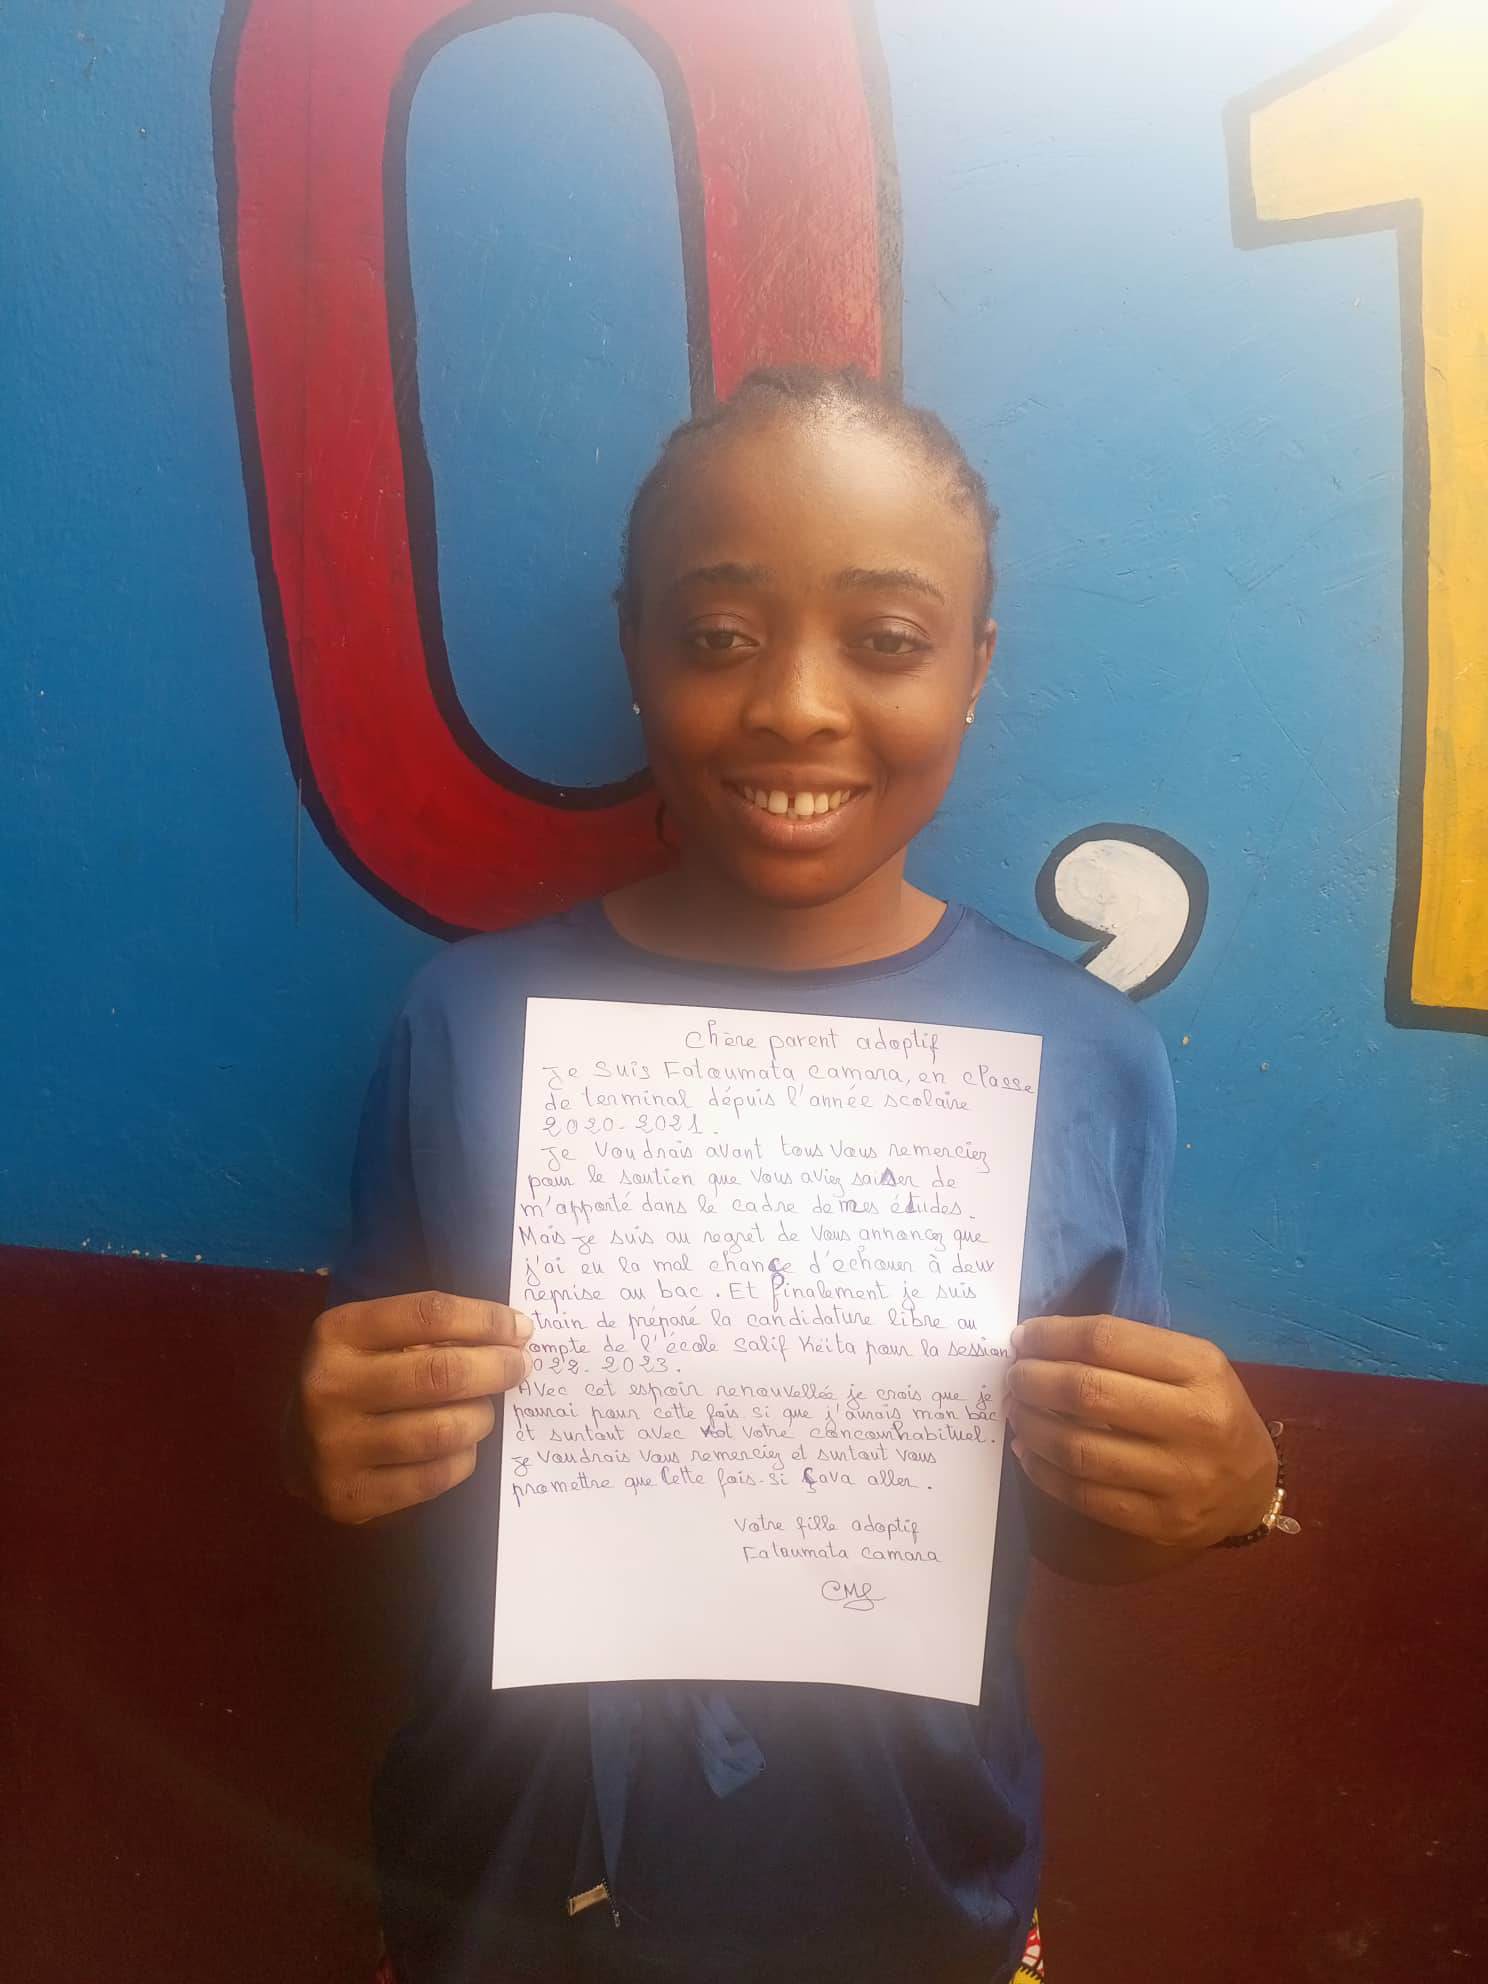 0,1
Chère parent adoptif
Je suis Fatoumata camara, en classe
de terminal dépuis l'année scolaire
2020-2021.
Je voudrais avant tous vous remerciez
pour le soutien que vous aviez saiser de
m'apporté dans le cadre de mes études.
Mais je suis au regret de vous annoncez que
j'ai eu la mal chance d'échouer à deux
reprise au bac. Et finalement je suis
train de préparé la candidature libre au
ompte de l'école Salif Keïta pour la session
022-2023.
Avec cet espoir renouvellée je crois que je
pourai pour cette fois-si que j'aurais mon bac
et surtout avec votre concour habituel.
Je voudrais vous remerciez et surtout vous
promettre que cette fois-si çava aller.
Votre fille adoptif
Fatoumata camara